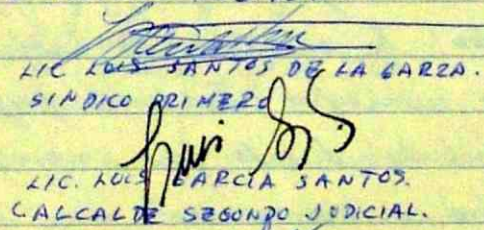 LIC LUIS SANTOS DE LA GARZA.
SINDICO PRIMERO
LIC. LUIS GARCIA SANTOS.
CALCALDE SEGUNDO JUDICIAL.